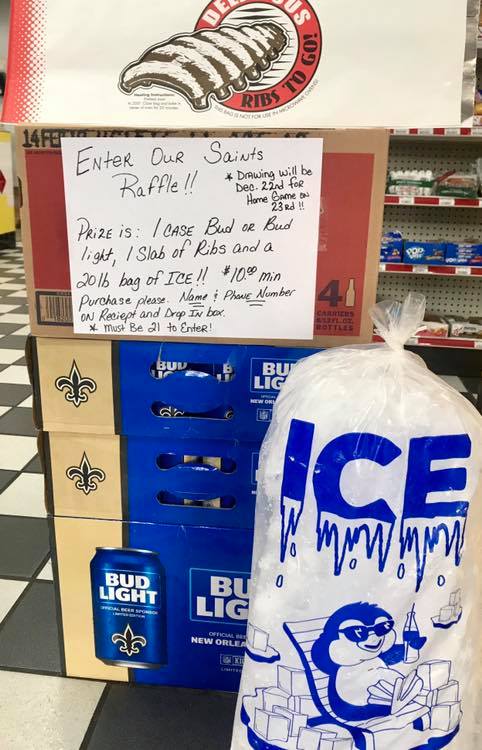 DELICIOUS
RIBS TO GO!
THIS BAG IS NOT FOR USE IN MICROWAVE
Heating Instructions
Enter Our Saints
Raffle!!
* Drawing will be
Dec. 22nd for
Home Game on
23rd!!
Prize is: 1 case Bud or Bud
light, 1 Slab of Ribs and a
20lb bag of ICE!! $10.00 min
Purchase please. Name & Phone Number
on Reciept and Drop In box.
* Must Be 21 to Enter!
4
CARRIERS
BOTTLES
BUD
LIG
NEW ORL
BUD
LIGHT
OFFICIAL BEER SPONSOR
LIMITED EDITION
BU
LIG
OFFICIAL BEE
NEW ORLEA
ICE